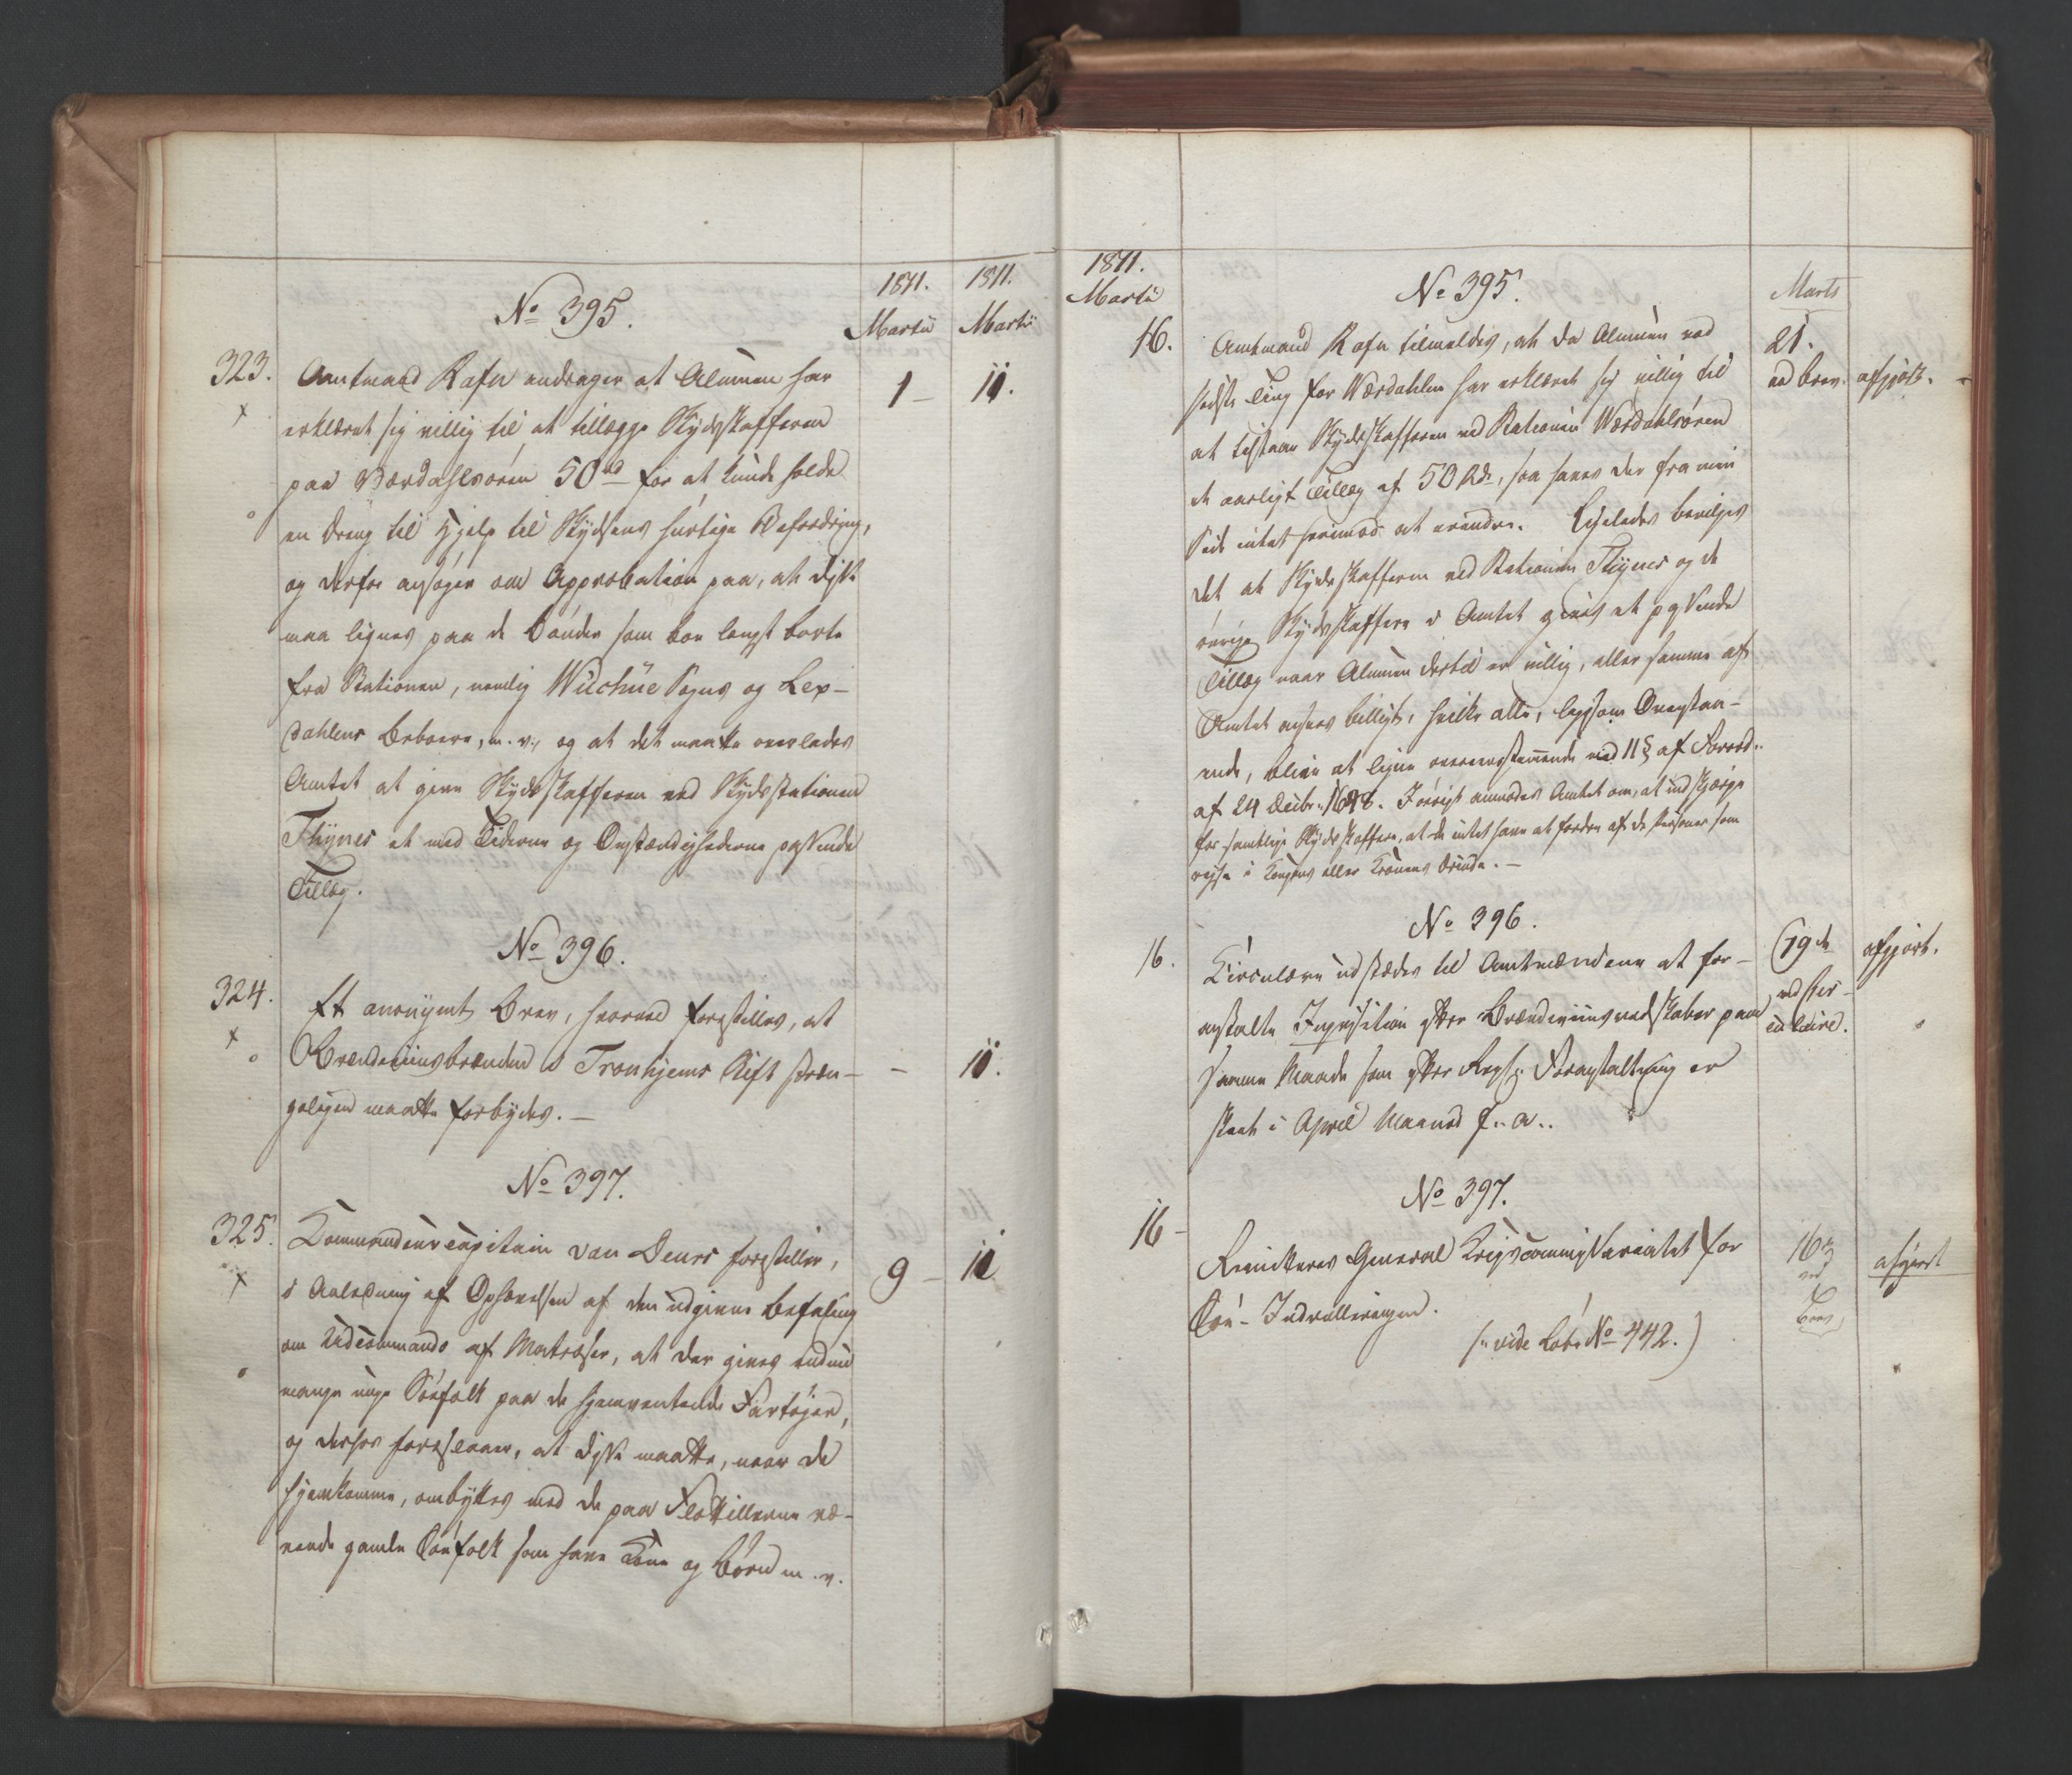 1811.
Martii
1811.
Martii
No 395.
323.
Amtmand Rafn andrager at Almuen har
1 –
11.
erklæret sig villig til at tillægge Skydsskafferen
paa Værdahlsøren 50 rd for at kunde holde
en Dreng til Hjelp til Skydsens hurtige Befordring,
og derfor ansøger om Approbation paa, at disse
maa lignes paa de Bønder som boe længst borte
fra Stationen, nemlig Wuchue Sogns og Lex-
dahlens Beboere, m. v., og at det maatte overlades
Amtet at give Skydsskafferen ved Skydsstationen
Thÿnes et med Tiderne og Omstændighederne passende
Tillæg.
No 396.
324.
Et anonymt Brev, hvorved forestilles, at
Brændeviinsbrænden i Tronhjems Stift stræn-
–
11.
geligen maatte forbydes. –
No 397.
325.
Commandeurcapitain van Deurs forestiller,
9 –
11
i Anledning af Ophævelsen af den udgivne Befaling
om Udcommando af Matroser, at der gives endnu
mange unge Søefolk paa de hjemventende Fartøjer,
og derfor foreslaaer, at disse maatte, naar de
hjemkomme, ombyttes med de paa Flottillerne væ-
rende gamle Søefolk som have Kone og Børn m. v.
1811.
Martii
No 395.
Marts
16.
Amtmand Rafn tilmeldes, at da Almuen ved
21.
sidste Ting for Værdahlen har erklæret sig villig til
ved Brev.
afgjort.
at tilstaae Skydsskafferen ved Stationen Værdahlsøren
et aarligt Tillæg af 50 Rd., saa haves der fra min
Side intet herimod at erindre. Ligeledes bevilges
det at Skydsskafferen ved Stationen Thÿnes og de
øvrige Skydsskaffere i Amtet gives et passende
Tillæg naar Almuen dertil er villig, eller samme af
Amtet ansees billigt, hvilke alle, ligesom Ovenstaa-
ende, blive at ligne overeensstemmende med 11 § af Forord.
af 24 Decbr. 1648. Iøvrigt anmodes Amtet om, at indskjærpe
for samtlige Skydsskaffere, at de intet have at fordre af de Personer som
rejse i Kongens eller Kronens Ærinde. –
No 396.
16.
Circulære udstædes til Amtmændene at for-
19de
afgjort.
anstalte Inqvisition efter Brændeviinsredskaber paa
ved Cir-
culaire.
samme Maade som efter Regj. Foranstaltning er
skeet i April Maaned f. a..
No 397.
16 –
Remitteres General Krigscommissariatet for
16de
afgjort
ved
Søe-Indrulleringen.
Brev
(: vide Løbe No 442.)